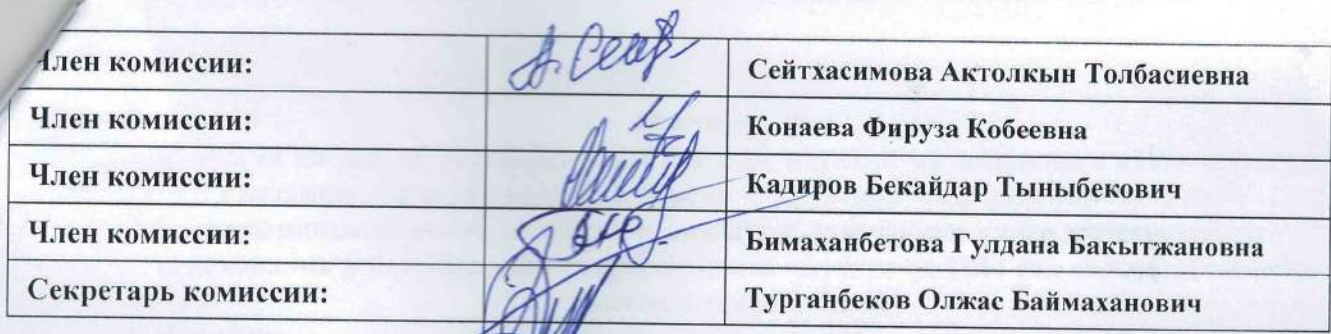 Член комиссии: Сейтхасимова Актолкын Толбасиевна
Член комиссии: Конаева Фируза Кобеевна
Член комиссии: Кадиров Бекайдар Тыныбекович
Член комиссии: Бимаханбетова Гулдана Бакытжановна
Секретарь комиссии: Турганбеков Олжас Баймаханович